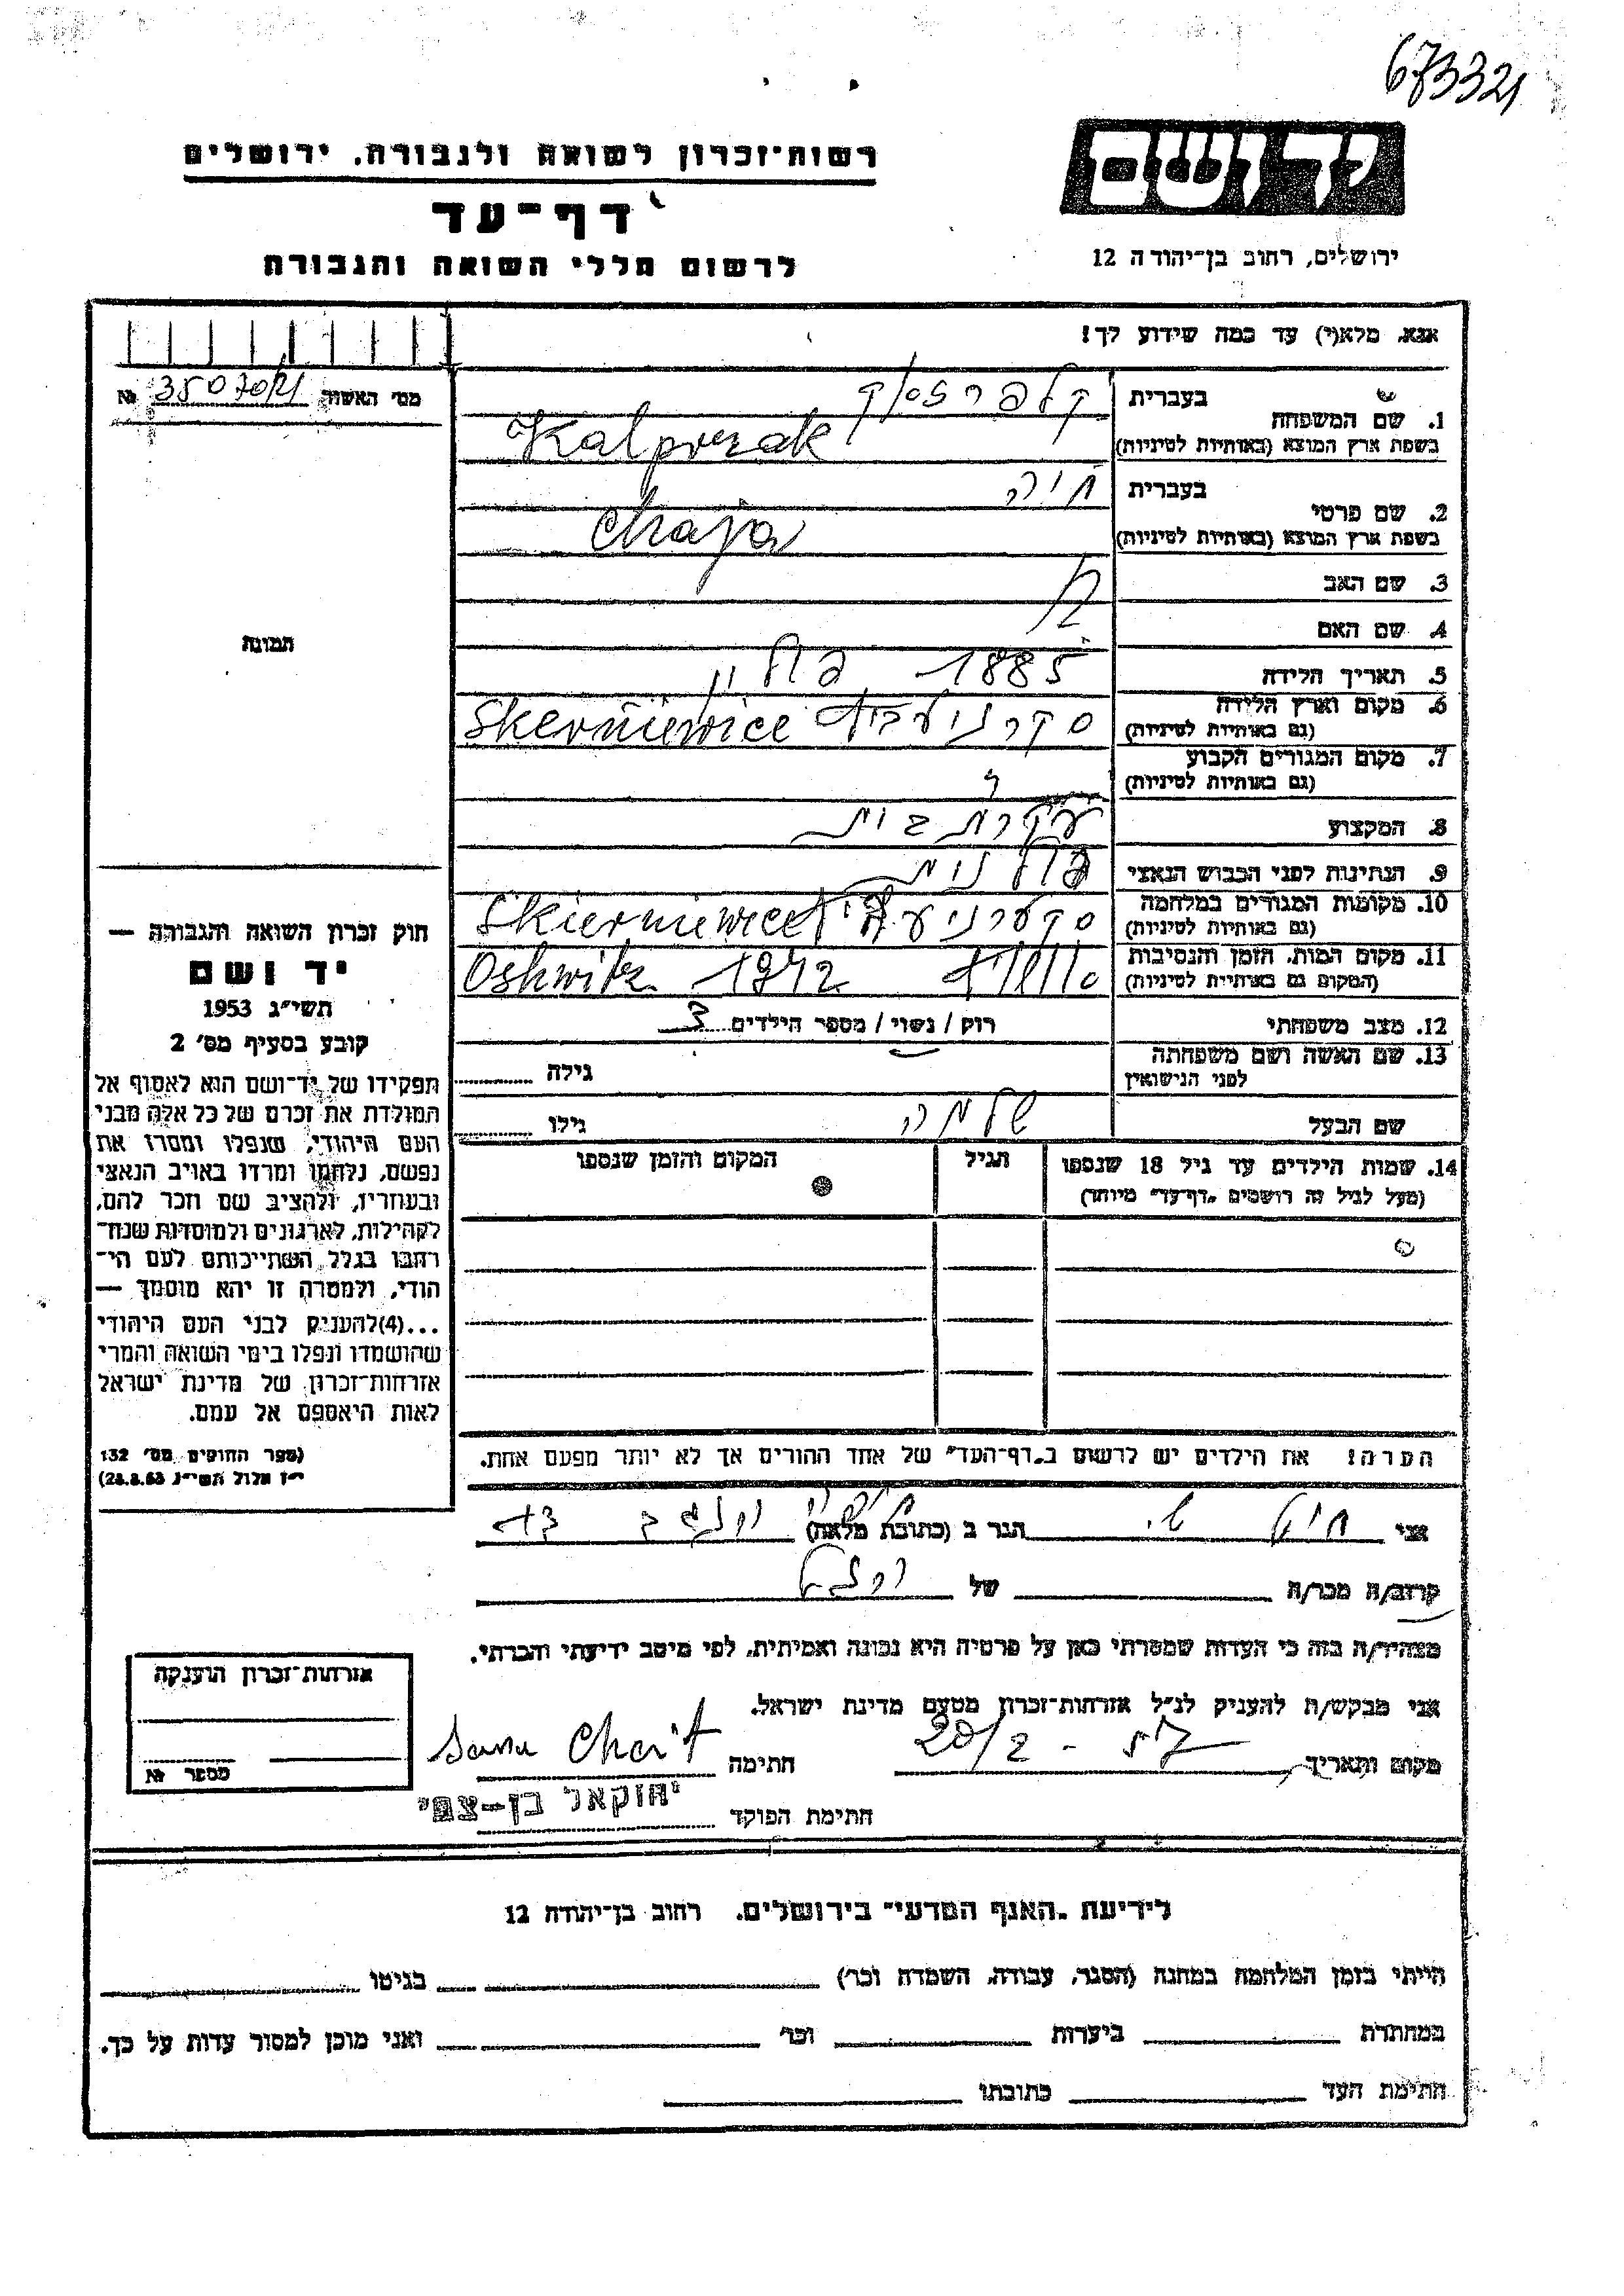 673321
רשות־זכרון לשואה ולגבורה. ירושלים
דף־עד
לרשום חללי השואה והגבורה
יד ושם
ירושלים, רחוב בן־יהודה 12
אנא, מלא(י) עד כמה שידוע לך!
מס׳ האשה 35070/21 №
התמונה
1. שם המשפחה בעברית
בשפת ארץ המוצא (באותיות לטיניות) Kalpvrzak
2. שם פרטי בעברית חיה
בשפת ארץ המוצא (באותיות לטיניות) Chaja
3. שם האב
4. שם האם
5. תאריך הלידה 1885 פולין
6. מקום וארץ הלידה
(גם באותיות לטיניות) Skerniewice
7. מקום המגורים הקבוע
(גם באותיות לטיניות)
8. המקצוע עקרת בית
9. הנתינות לפני הכבוש הנאצי פולנית
10. מקומות המגורים במלחמה
(גם באותיות לטיניות) Skierniewice
11. מקום המות, הזמן והנסיבות
(המקום גם באותיות לטיניות) Oshwitz 1942
12. מצב משפחתי רוק / נשוי / מספר הילדים 3
13. שם האשה ושם משפחתה
לפני הנישואין גילה
שם הבעל שלמה גילו
14. שמות הילדים עד גיל 18 שנספו הגיל המקום והזמן שנספו
(מעל לגיל זה רושמים „דף־עד״ מיוחד)
הערה! את הילדים יש לרשום ב„דף־העד״ של אחד ההורים אך לא יותר מפעם אחת.
חוק זכרון השואה והגבורה —
יד ושם
תשי״ג 1953
קובע בסעיף מס׳ 2
תפקידו של יד־ושם הוא לאסוף אל
המולדת את זכרם של כל אלה מבני
העם היהודי, שנפלו ומסרו את
נפשם, נלחמו ומרדו באויב הנאצי
ובעוזריו, ולהציב שם וזכר להם,
לקהילות, לארגונים ולמוסדות שנח־
רבו בגלל השתייכותם לעם הי־
הודי, ולמטרה זו יהא מוסמך —
...(4)להעניק לבני העם היהודי
שהושמדו ונפלו בימי השואה והמרי
אזרחות־זכרון של מדינת ישראל
לאות היאספם אל עמם.
(ספר החוקים מס׳ 132
י״ז אלול תשי״ג 28.8.53)
אני הגר ב (כתובת מלאה)
קרוב/ה מכר/ה של
מצהיר/ה בזה כי העדות שמסרתי כאן על פרטיה היא נכונה ואמיתית, לפי מיטב ידיעתי והכרתי.
אני מבקש/ת להעניק לנ״ל אזרחות־זכרון מטעם מדינת ישראל.
מקום ותאריך 20/2 חתימה
חתימת הפוקד יחזקאל בן-צבי
אזרחות־זכרון הוענקה
מספר №
לידיעת „האגף המדעי״ בירושלים, רחוב בן־יהודה 12
הייתי בזמן המלחמה במחנה (הסגר, עבודה, השמדה וכו׳) בגיטו
במחתרת ביערות וכו׳ ואני מוכן למסור עדות על כך.
חתימת העד כתובתו